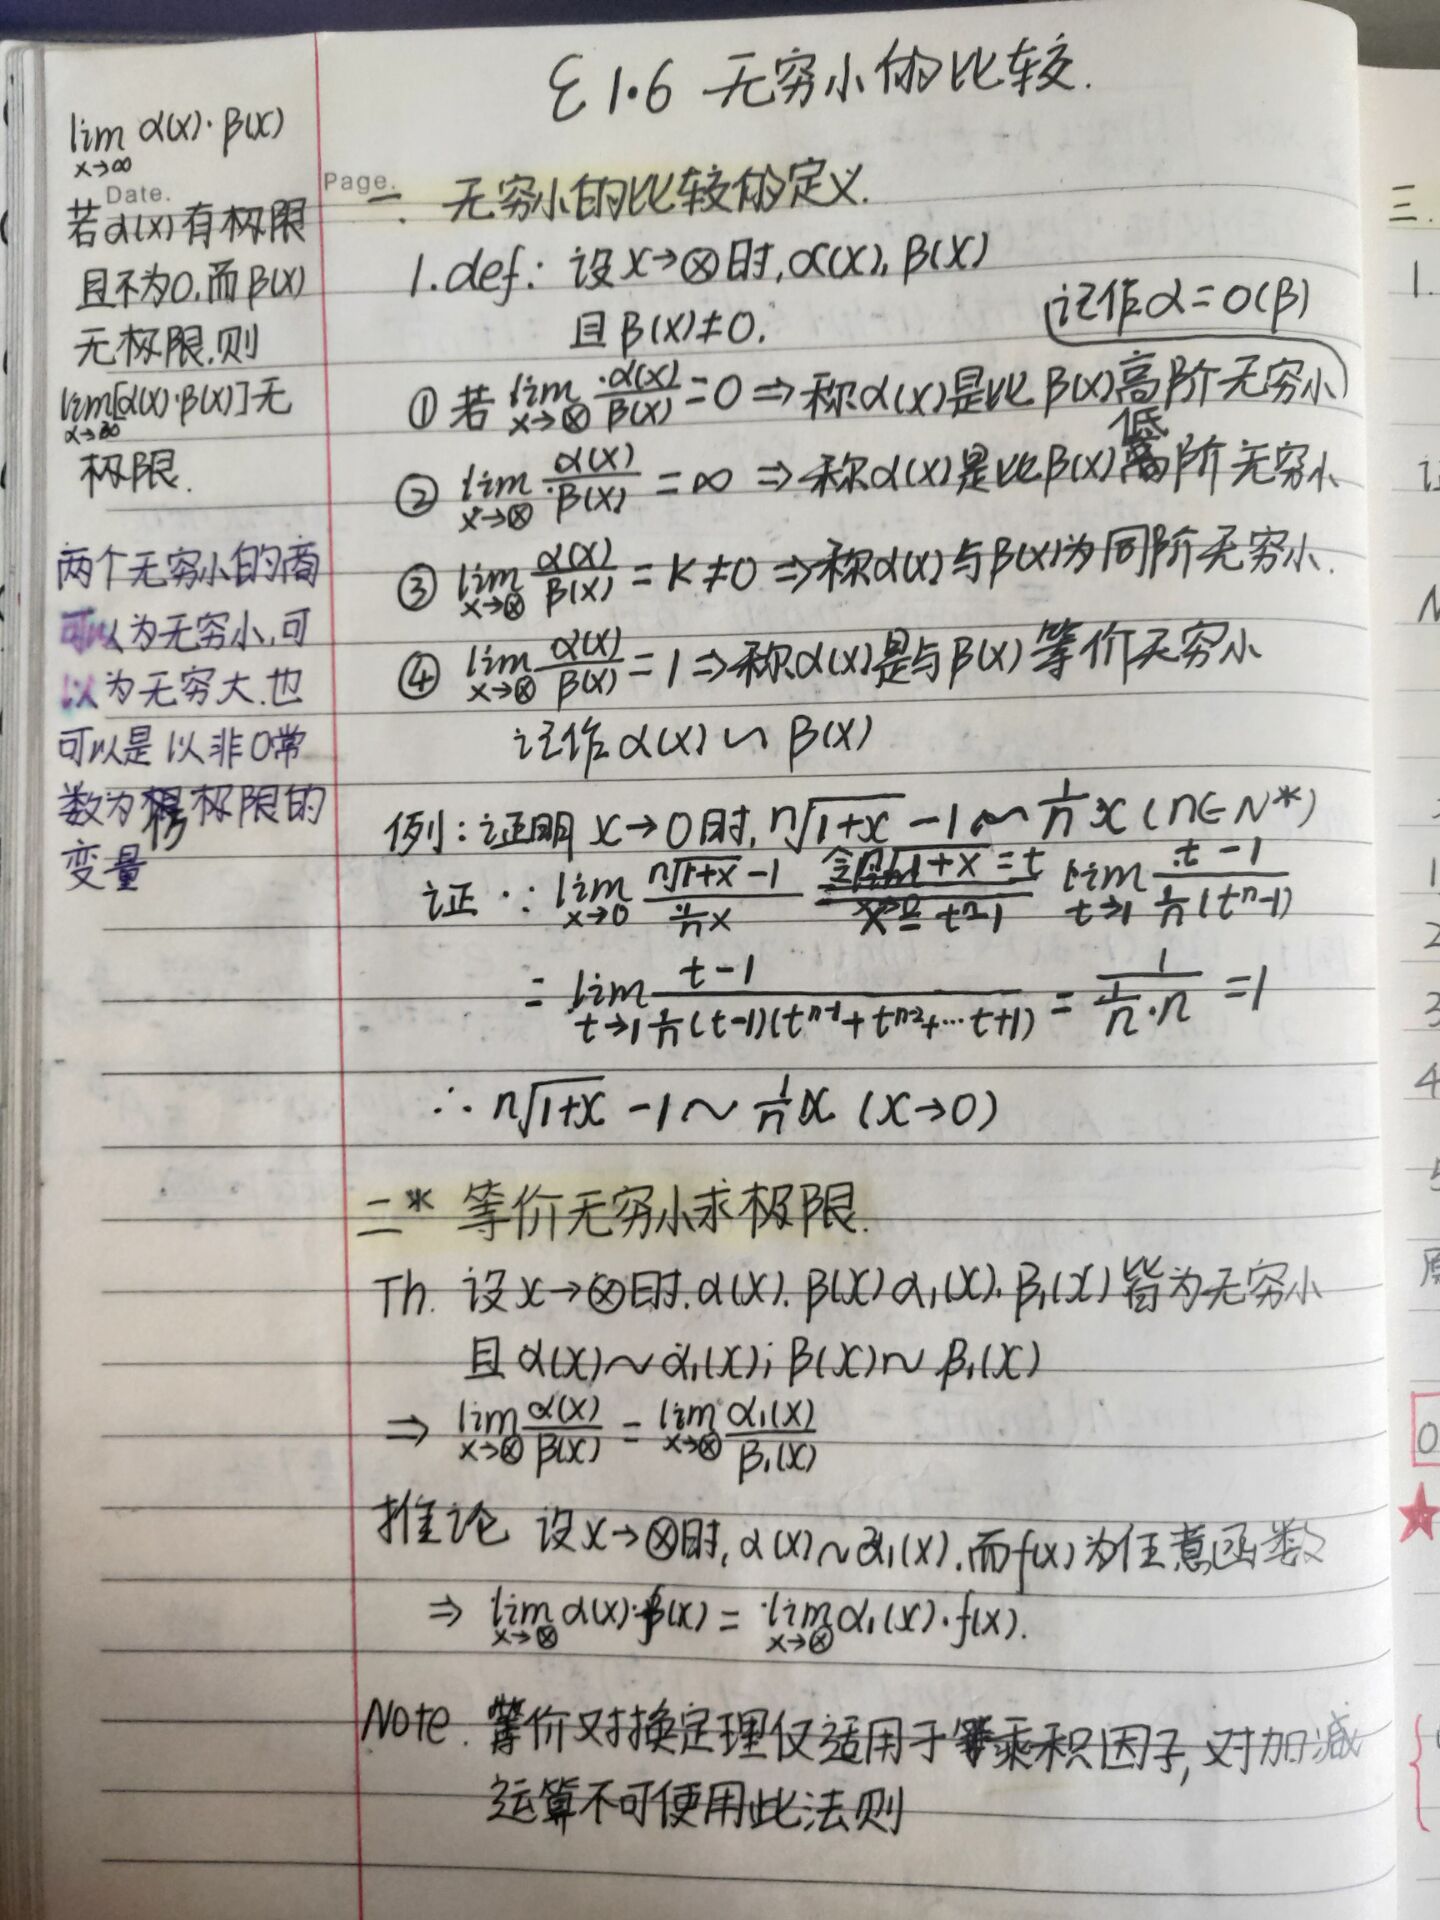 § 1.6 无穷小的比较.
lim α(x)·β(x)
x→∞
Date.
若α(x)有极限
且不为0,而β(x)
无极限.则
lim[α(x)·β(x)]无
x→∞
极限.
两个无穷小的商
可以为无穷小,可
以为无穷大.也
可以是以非0常
数为极限的
变量
Page.
一. 无穷小的比较的定义.
1.def: 设x→⊗时,α(x), β(x)
且β(x)≠0.
记作α=o(β)
① 若 lim_{x→⊗} α(x)/β(x) = 0 ⇒ 称α(x)是比β(x)高阶无穷小
② lim_{x→⊗} α(x)/β(x) = ∞ ⇒ 称α(x)是比β(x)低阶无穷小
③ lim_{x→⊗} α(x)/β(x) = K≠0 ⇒ 称α(x)与β(x)为同阶无穷小.
④ lim_{x→⊗} α(x)/β(x) = 1 ⇒ 称α(x)是与β(x)等价无穷小
记作α(x) ∽ β(x)
例: 证明 x→0时, n√(1+x) -1 ~ 1/n x (n∈N*)
证 ∵ lim_{x→0} (n√(1+x) -1)/(1/n x) 令n√(1+x)=t x=t^n-1 lim_{t→1} (t-1)/(1/n (t^n-1))
= lim_{t→1} (t-1)/(1/n (t-1)(t^{n-1}+t^{n-2}+…t+1)) = 1/(1/n·n) =1
∴ n√(1+x) -1 ~ 1/n x (x→0)
二* 等价无穷小求极限.
Th. 设x→⊗时. α(x). β(x) α₁(x). β₁(x) 皆为无穷小
且α(x)~α₁(x); β(x)~β₁(x)
⇒ lim_{x→⊗} α(x)/β(x) = lim_{x→⊗} α₁(x)/β₁(x)
推论 设x→⊗时, α(x)~α₁(x).而f(x)为任意函数
⇒ lim_{x→⊗} α(x)·f(x) = lim_{x→⊗} α₁(x)·f(x).
Note. 等价对换定理仅适用于乘积因子,对加减
运算不可使用此法则
三.
1.
1
2
3
4
5